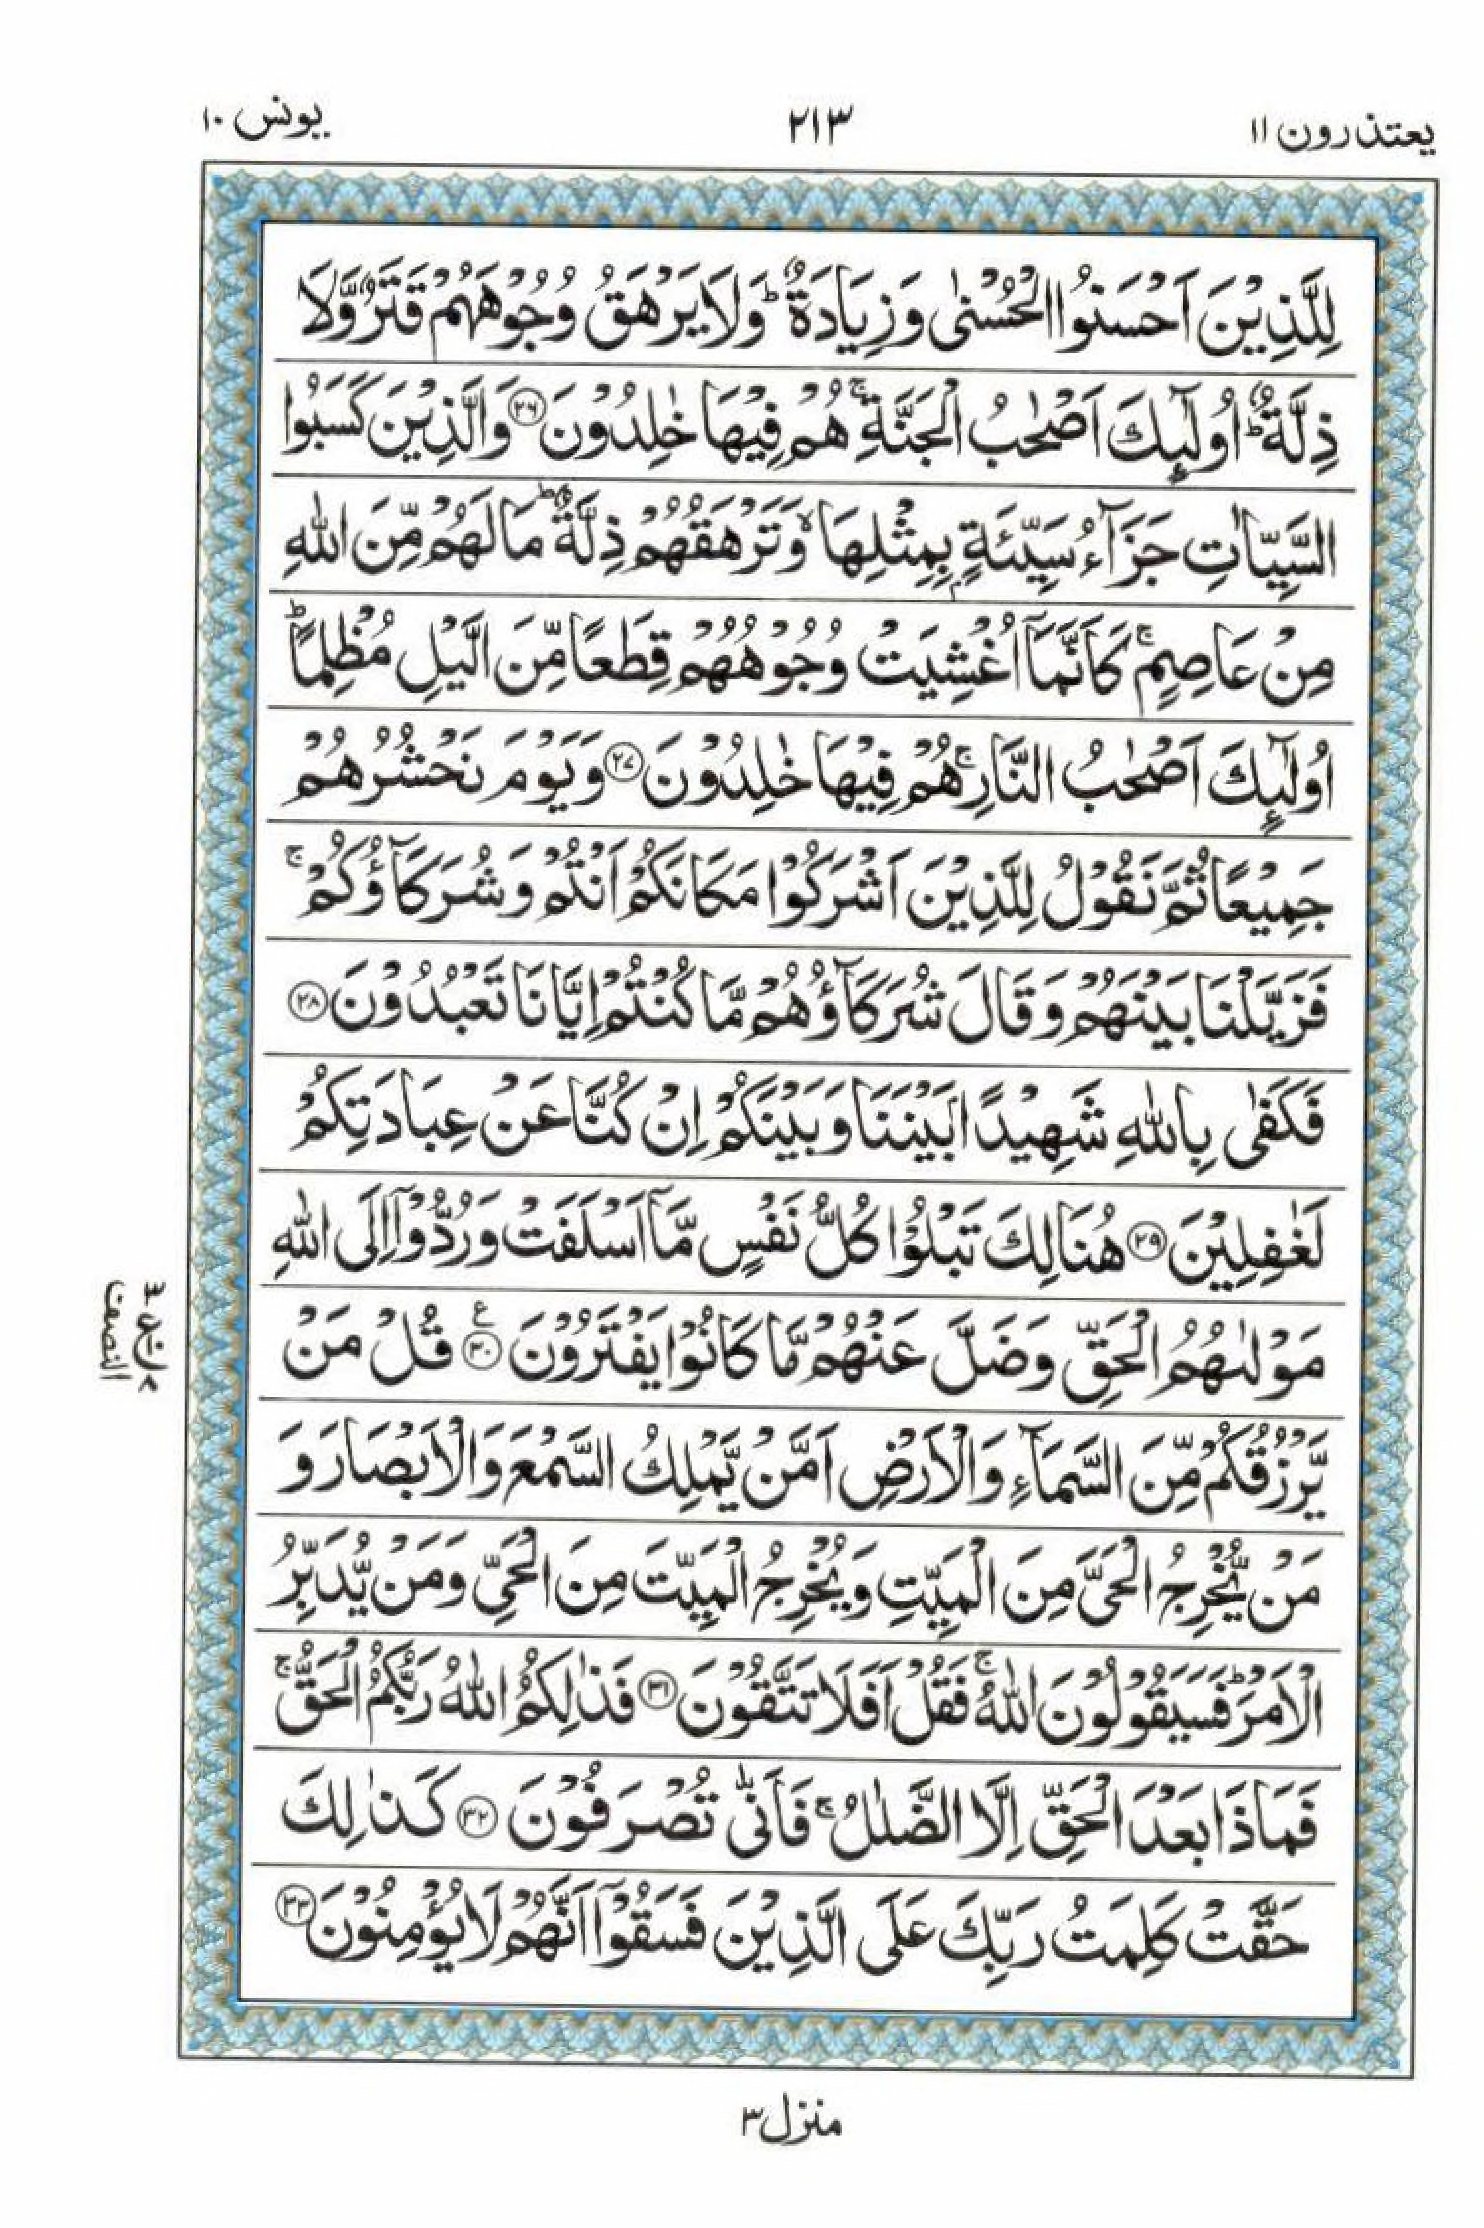 يعتذرون ١١
٢١٣
يونس ١٠
لِلَّذِيْنَ اَحْسَنُوا الْحُسْنٰى وَ زِيَادَةٌ ؕ وَلَا يَرْهَقُ وُجُوْهَهُمْ قَتَرٌ وَّلَا
ذِلَّةٌ ؕ اُولٰٓئِكَ اَصْحٰبُ الْجَنَّةِ ۚ هُمْ فِيْهَا خٰلِدُوْنَ ﴿۲۶﴾ وَالَّذِيْنَ كَسَبُوا
السَّيِّاٰتِ جَزَآءُ سَيِّئَةٍۭ بِمِثْلِهَا ۙ وَتَرْهَقُهُمْ ذِلَّةٌ ؕ مَا لَهُمْ مِّنَ اللّٰهِ
مِنْ عَاصِمٍ ۚ كَاَنَّمَآ اُغْشِيَتْ وُجُوْهُهُمْ قِطَعًا مِّنَ الَّيْلِ مُظْلِمًا ؕ
اُولٰٓئِكَ اَصْحٰبُ النَّارِ ۚ هُمْ فِيْهَا خٰلِدُوْنَ ﴿۲۷﴾ وَيَوْمَ نَحْشُرُهُمْ
جَمِيْعًا ثُمَّ نَقُوْلُ لِلَّذِيْنَ اَشْرَكُوْا مَكَانَكُمْ اَنْتُمْ وَشُرَكَآؤُكُمْ ۚ
فَزَيَّلْنَا بَيْنَهُمْ وَقَالَ شُرَكَآؤُهُمْ مَّا كُنْتُمْ اِيَّانَا تَعْبُدُوْنَ ﴿۲۸﴾
فَكَفٰى بِاللّٰهِ شَهِيْدًۢا بَيْنَنَا وَبَيْنَكُمْ اِنْ كُنَّا عَنْ عِبَادَتِكُمْ
لَغٰفِلِيْنَ ﴿۲۹﴾ هُنَالِكَ تَبْلُوْا كُلُّ نَفْسٍ مَّآ اَسْلَفَتْ وَرُدُّوْٓا اِلَى اللّٰهِ
مَوْلٰىهُمُ الْحَقِّ وَضَلَّ عَنْهُمْ مَّا كَانُوْا يَفْتَرُوْنَ ﴿۳۰﴾ ع قُلْ مَنْ
يَّرْزُقُكُمْ مِّنَ السَّمَآءِ وَالْاَرْضِ اَمَّنْ يَّمْلِكُ السَّمْعَ وَالْاَبْصَارَ وَ
مَنْ يُّخْرِجُ الْحَيَّ مِنَ الْمَيِّتِ وَيُخْرِجُ الْمَيِّتَ مِنَ الْحَيِّ وَمَنْ يُّدَبِّرُ
الْاَمْرَ ؕ فَسَيَقُوْلُوْنَ اللّٰهُ ۚ فَقُلْ اَفَلَا تَتَّقُوْنَ ﴿۳۱﴾ فَذٰلِكُمُ اللّٰهُ رَبُّكُمُ الْحَقُّ ۚ
فَمَاذَا بَعْدَ الْحَقِّ اِلَّا الضَّلٰلُ ۚ فَاَنّٰى تُصْرَفُوْنَ ﴿۳۲﴾ كَذٰلِكَ
حَقَّتْ كَلِمَتُ رَبِّكَ عَلَى الَّذِيْنَ فَسَقُوْٓا اَنَّهُمْ لَا يُؤْمِنُوْنَ ﴿۳۳﴾
النصف
منزل ٣